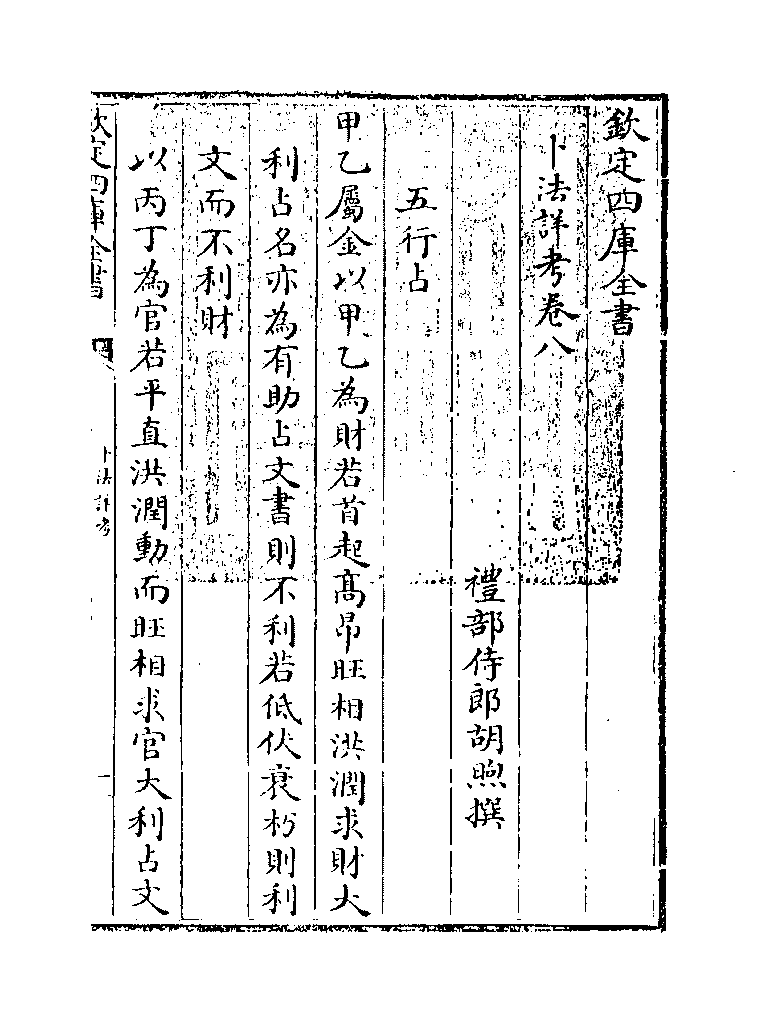 欽定四庫全書
卜法詳考卷八
禮部侍郎胡煦撰
五行占
甲乙屬金以甲乙為財若首起髙昂旺相洪潤求財大
利占名亦為有助占文書則不利若低伏衰朽則利
文而不利財
以丙丁為官若平直洪潤動而旺相求官大利占文
欽定四庫全書
卜法詳考
一